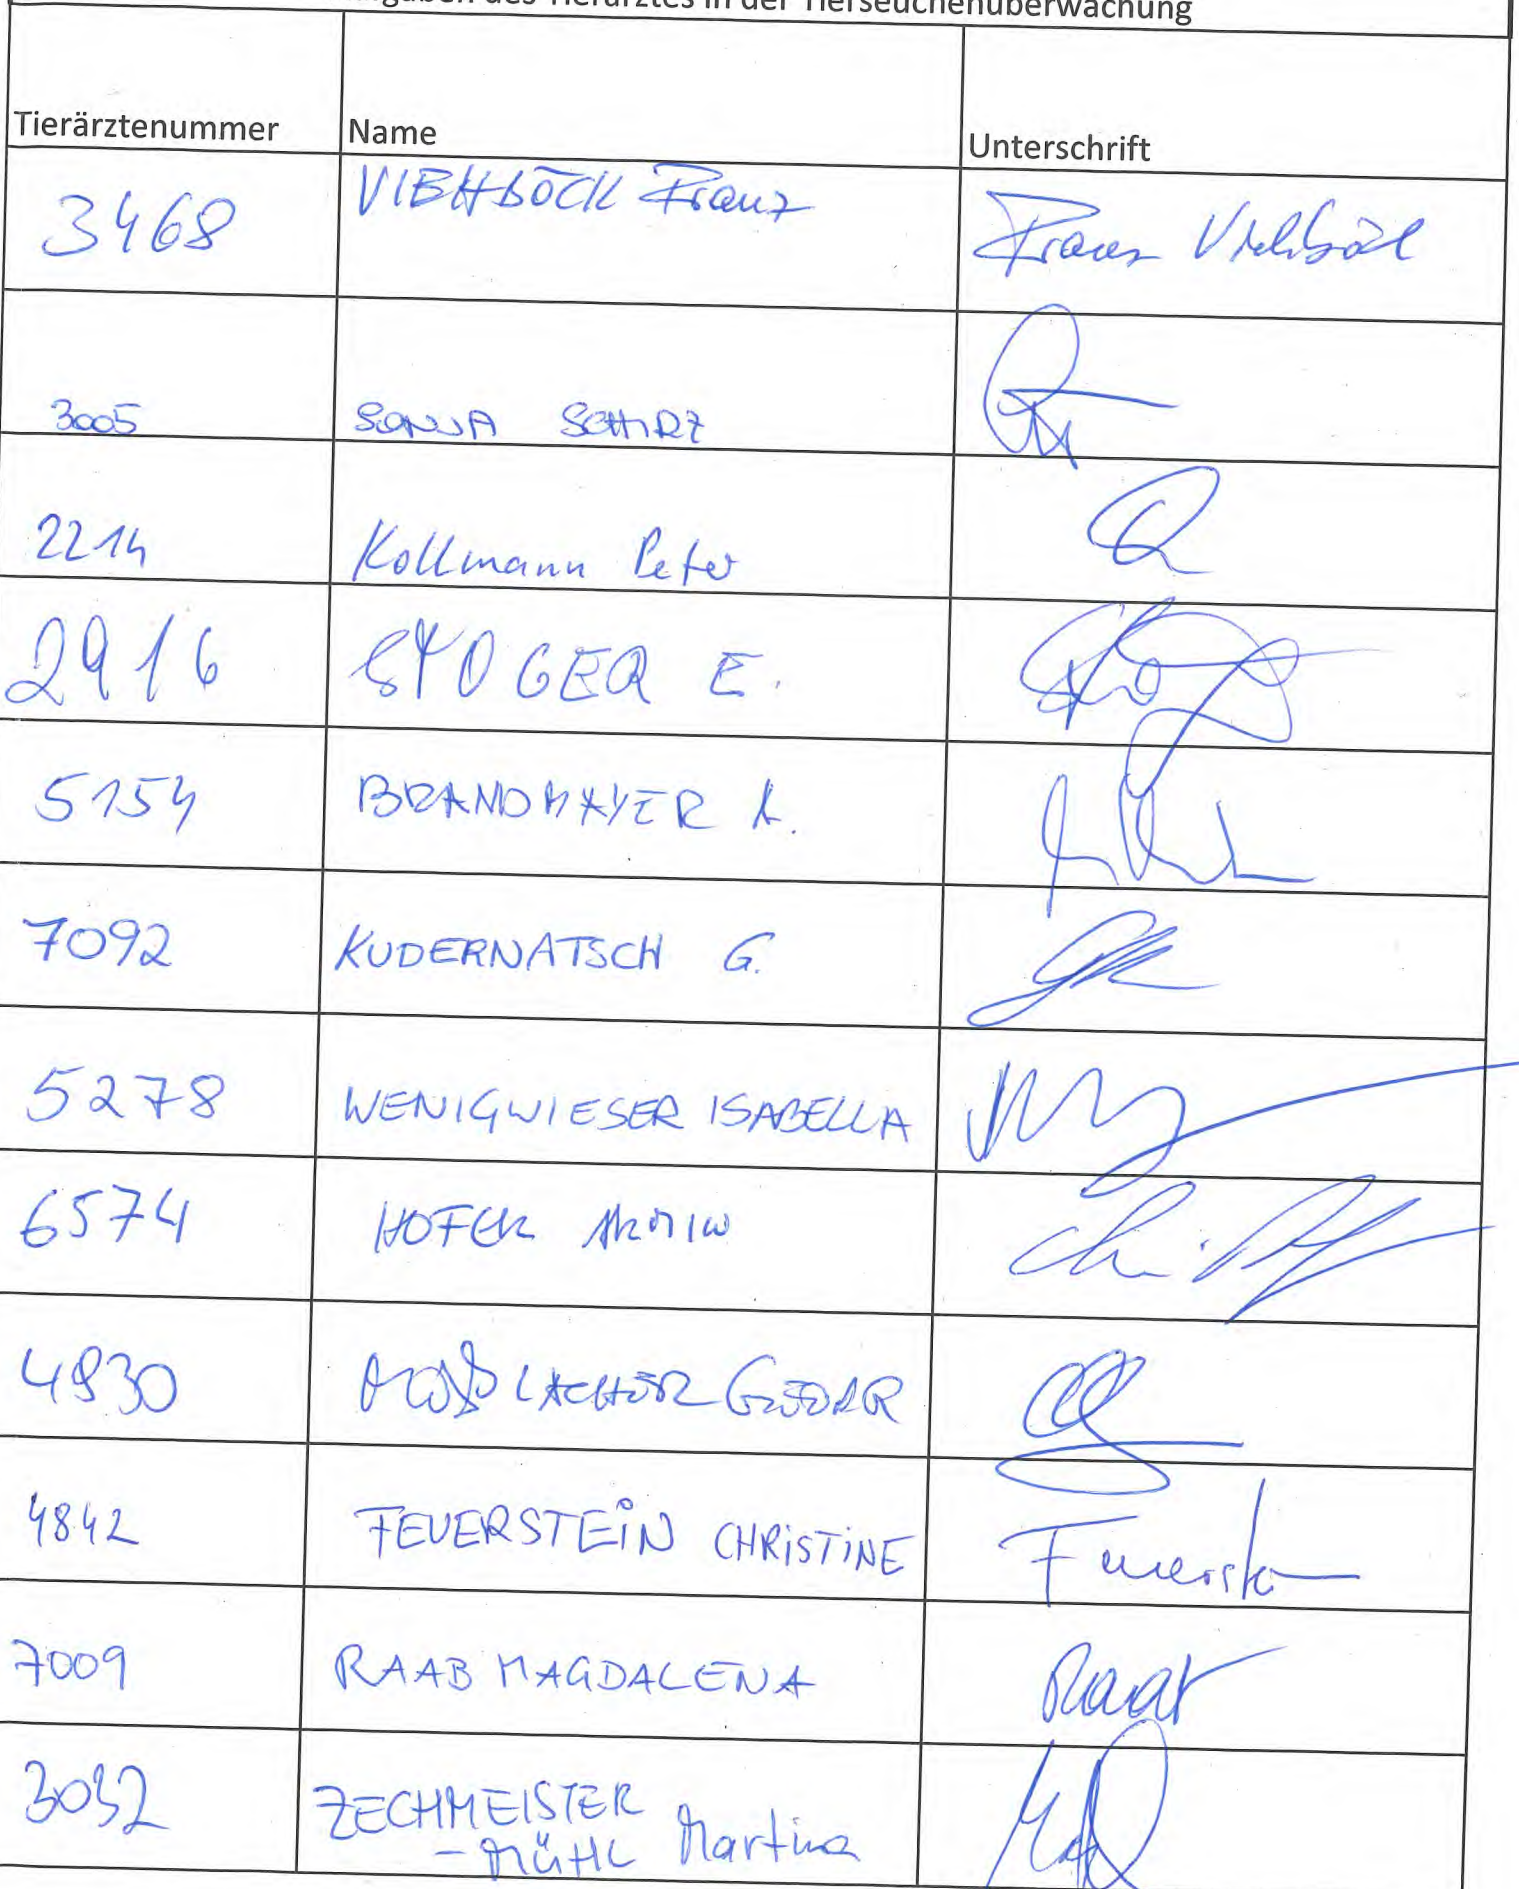 des Tierarztes in der Tierseuchenüberwachung
Tierärztenummer Name Unterschrift
3468 VIEHBÖCK Franz Franz Viehböck
3005 SONJA
2214 Kollmann Peter
2916 STÖGER E.
5154 BRANDMAYER A.
7092 KUDERNATSCH G.
5278 WENIGWIESER ISABELLA
6574 HOFER ARMIN
4830
4842 FEUERSTEIN CHRISTINE Feuerstein
7009 RAAB MAGDALENA Raab
3032 ZECHMEISTER
-MÜHL Martina